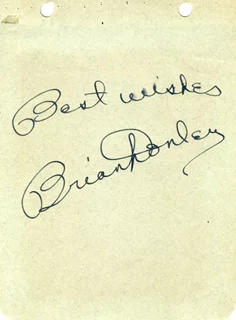 Best wishes
Brian Donlevy